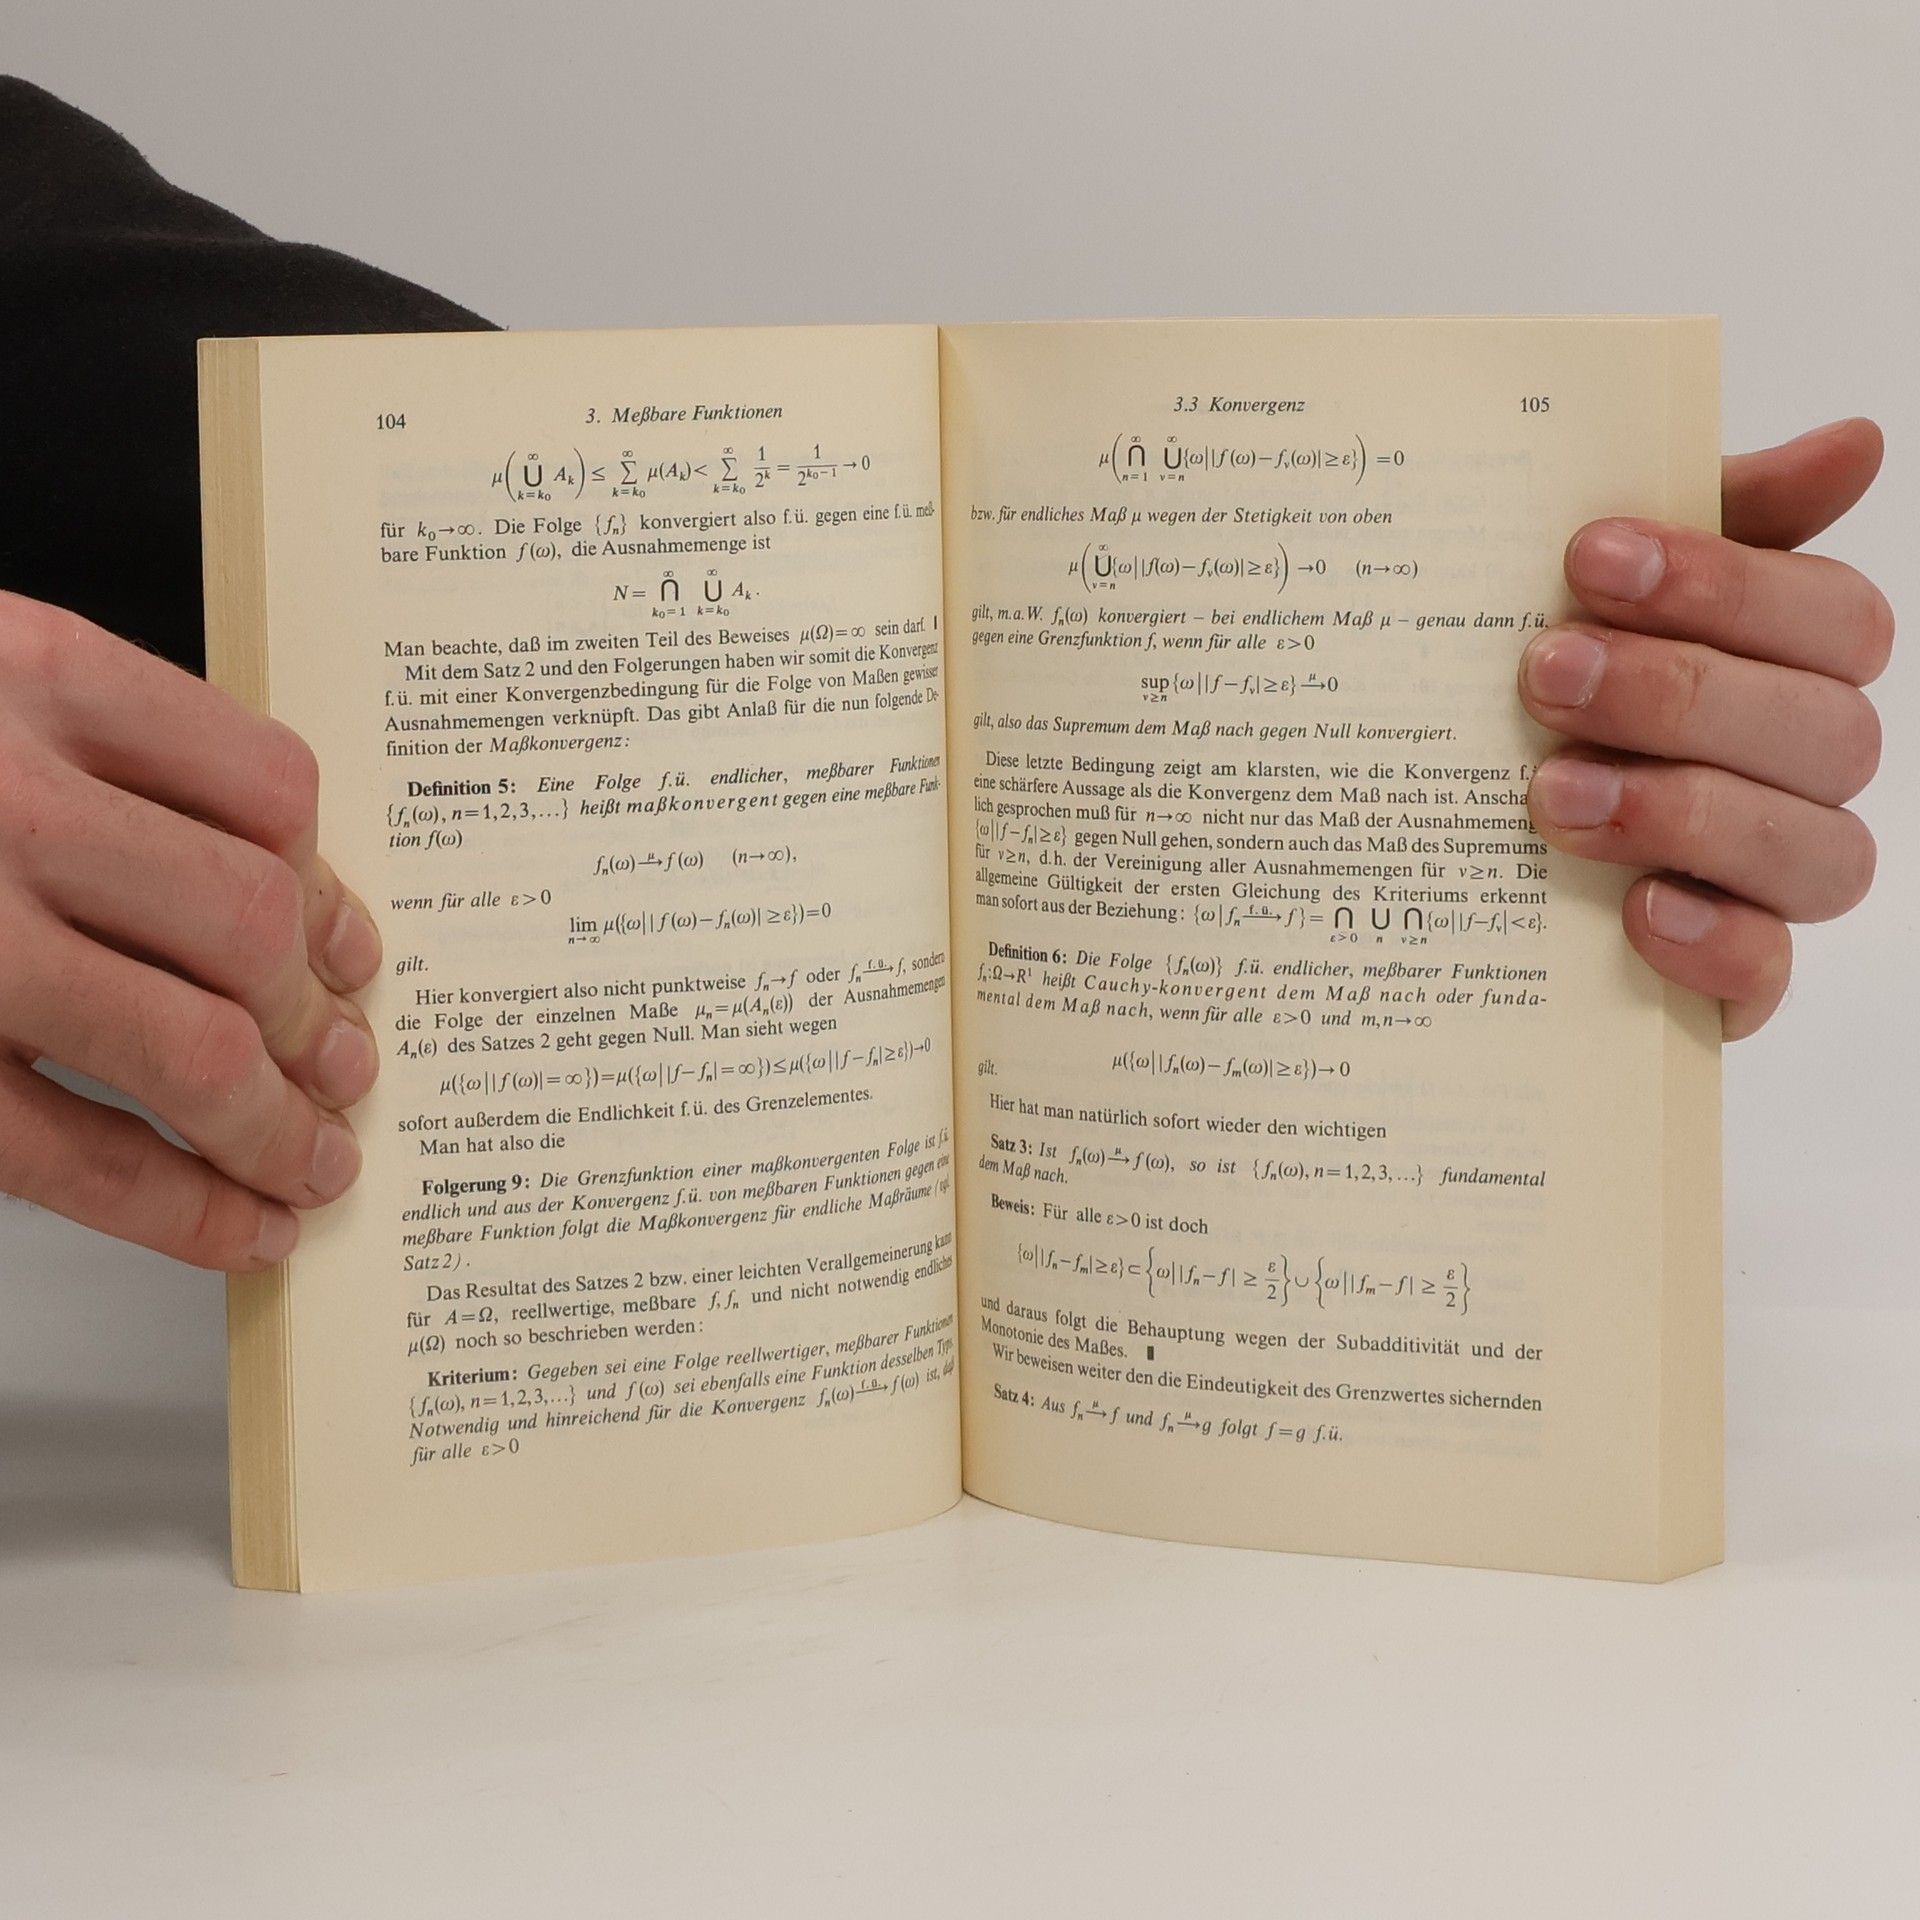 104 3. Meßbare Funktionen
μ(⋃_{k=k₀}^∞ A_k) ≤ ∑_{k=k₀}^∞ μ(A_k) < ∑_{k=k₀}^∞ 1/2^k = 1/2^{k₀−1} → 0
für k₀→∞. Die Folge {f_n} konvergiert also f.ü. gegen eine f.ü. meß-
bare Funktion f(ω), die Ausnahmemenge ist
N = ⋂_{k₀=1}^∞ ⋃_{k=k₀}^∞ A_k.
Man beachte, daß im zweiten Teil des Beweises μ(Ω)=∞ sein darf. ▮
Mit dem Satz 2 und den Folgerungen haben wir somit die Konvergenz
f.ü. mit einer Konvergenzbedingung für die Folge von Maßen gewisser
Ausnahmemengen verknüpft. Das gibt Anlaß für die nun folgende De-
finition der Maßkonvergenz:
Definition 5: Eine Folge f.ü. endlicher, meßbarer Funktionen
{f_n(ω), n=1,2,3,…} heißt maßkonvergent gegen eine meßbare Funk-
tion f(ω)
f_n(ω) →^μ f(ω) (n→∞),
wenn für alle ε>0
lim_{n→∞} μ({ω| |f(ω)−f_n(ω)| ≥ε})=0
gilt.
Hier konvergiert also nicht punktweise f_n→f oder f_n →^{f.ü.} f, sondern
die Folge der einzelnen Maße μ_n=μ(A_n(ε)) der Ausnahmemengen
A_n(ε) des Satzes 2 geht gegen Null. Man sieht wegen
μ({ω| |f(ω)|=∞})=μ({ω| |f−f_n|=∞})≤μ({ω| |f−f_n|≥ε})→0
sofort außerdem die Endlichkeit f.ü. des Grenzelementes.
Man hat also die
Folgerung 9: Die Grenzfunktion einer maßkonvergenten Folge ist f.ü.
endlich und aus der Konvergenz f.ü. von meßbaren Funktionen gegen eine
meßbare Funktion folgt die Maßkonvergenz für endliche Maßräume (vgl.
Satz 2).
Das Resultat des Satzes 2 bzw. einer leichten Verallgemeinerung kann
für A=Ω, reellwertige, meßbare f, f_n und nicht notwendig endliches
μ(Ω) noch so beschrieben werden:
Kriterium: Gegeben sei eine Folge reellwertiger, meßbarer Funktionen
{f_n(ω), n=1,2,3,…} und f(ω) sei ebenfalls eine Funktion desselben Typs.
Notwendig und hinreichend für die Konvergenz f_n(ω) →^{f.ü.} f(ω) ist, daß
für alle ε>0
3.3 Konvergenz 105
μ(⋂_{n=1}^∞ ⋃_{ν=n}^∞ {ω| |f(ω)−f_ν(ω)|≥ε}) =0
bzw. für endliches Maß μ wegen der Stetigkeit von oben
μ(⋃_{ν=n}^∞ {ω| |f(ω)−f_ν(ω)|≥ε}) →0 (n→∞)
gilt, m.a.W. f_n(ω) konvergiert – bei endlichem Maß μ – genau dann f.ü.
gegen eine Grenzfunktion f, wenn für alle ε>0
sup_{ν≥n} {ω| |f−f_ν|≥ε} →^μ 0
gilt, also das Supremum dem Maß nach gegen Null konvergiert.
Diese letzte Bedingung zeigt am klarsten, wie die Konvergenz f.
eine schärfere Aussage als die Konvergenz dem Maß nach ist. Anscha
lich gesprochen muß für n→∞ nicht nur das Maß der Ausnahmemeng
{ω| |f−f_n|≥ε} gegen Null gehen, sondern auch das Maß des Supremums
für ν≥n, d.h. der Vereinigung aller Ausnahmemengen für ν≥n. Die
allgemeine Gültigkeit der ersten Gleichung des Kriteriums erkennt
man sofort aus der Beziehung: {ω| f_n →^{f.ü.} f} = ⋂_{ε>0} ⋃_n ⋂_{ν≥n} {ω| |f−f_ν|<ε}.
Definition 6: Die Folge {f_n(ω)} f.ü. endlicher, meßbarer Funktionen
f_n:Ω→R¹ heißt Cauchy-konvergent dem Maß nach oder funda-
mental dem Maß nach, wenn für alle ε>0 und m,n→∞
μ({ω| |f_n(ω)−f_m(ω)|≥ε})→0
gilt.
Hier hat man natürlich sofort wieder den wichtigen
Satz 3: Ist f_n(ω) →^μ f(ω), so ist {f_n(ω), n=1,2,3,…} fundamental
dem Maß nach.
Beweis: Für alle ε>0 ist doch
{ω| |f_n−f_m|≥ε} ⊂ {ω| |f_n−f| ≥ ε/2} ∪ {ω| |f_m−f| ≥ ε/2}
und daraus folgt die Behauptung wegen der Subadditivität und der
Monotonie des Maßes. ▮
Wir beweisen weiter den die Eindeutigkeit des Grenzwertes sichernden
Satz 4: Aus f_n →^μ f und f_n →^μ g folgt f=g f.ü.